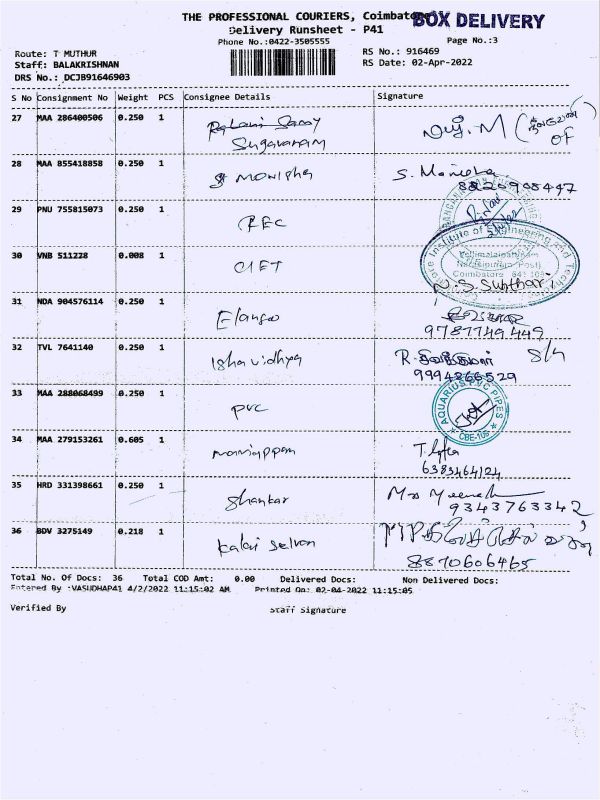 THE PROFESSIONAL COURIERS, Coimbatore
BOX DELIVERY
Delivery Runsheet - P41
Phone No.:0422-3505555
Page No.:3
Route: T MUTHUR
RS No.: 916469
Staff: BALAKRISHNAN
RS Date: 02-Apr-2022
DRS No.: DCJB91646903
S No Consignment No Weight PCS Consignee Details Signature
27 MAA 286400506 0.250 1
Sugavanam
28 MAA 855418858 0.250 1 Monisha S. Monisha
8820908447
29 PNU 755815073 0.250 1 REC
30 VNB 511228 0.008 1 CIET
Institute of Engineering and
Coimbatore 641 109
N.S. Subthari
31 NDA 904576114 0.250 1 Elango
9787749449
32 TVL 7641140 0.250 1 Isha vidhya R.
9994866529
33 MAA 288068499 0.250 1 PVC
AQUARIUS PVC PIPES
CBE-109
34 MAA 279153261 0.605 1
6383464124
35 HRD 331398661 0.250 1 Shankar
9343763342
36 BDV 3275149 0.218 1 Kalai Selvan
8870606465
Total No. Of Docs: 36 Total COD Amt: 0.00 Delivered Docs: Non Delivered Docs:
Entered By :VASUDHAP41 4/2/2022 11:15:02 AM Printed On: 02-04-2022 11:15:05
Verified By Staff Signature